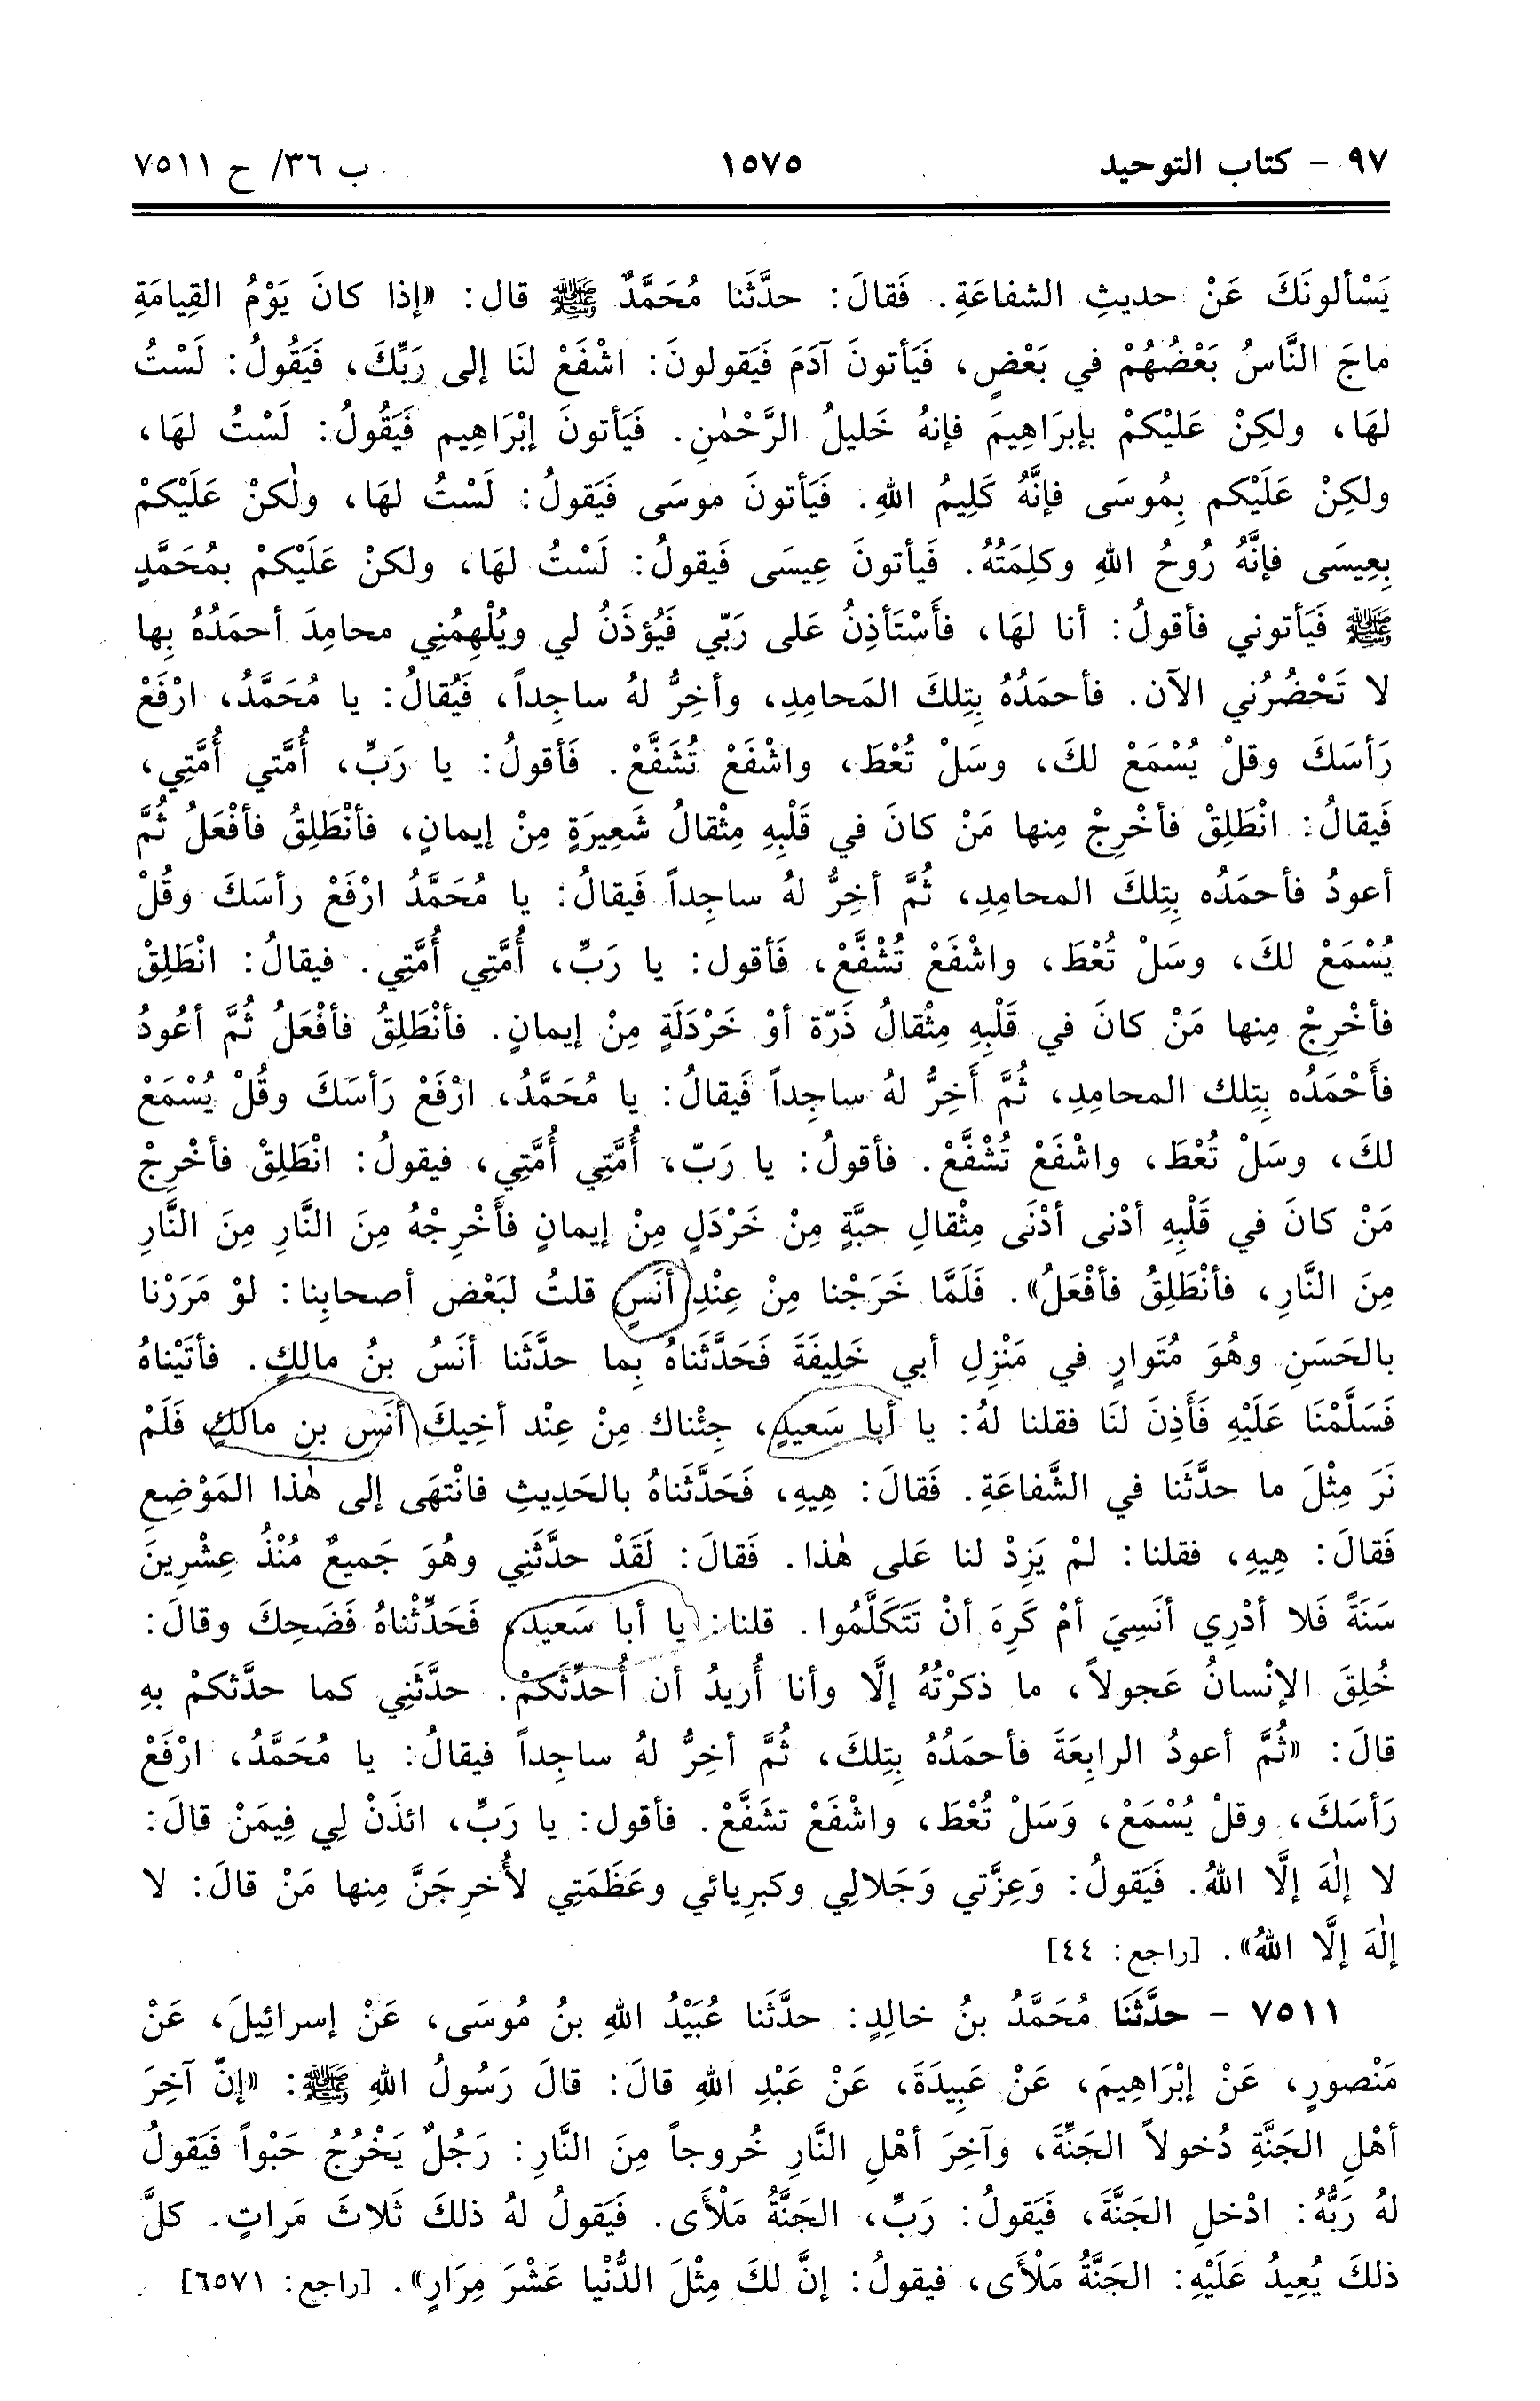 ٩٧ - كتاب التوحيد ١٥٧٥ ب ٣٦/ ح ٧٥١١
يَسْألونَكَ عَنْ حديثِ الشفاعَةِ. فَقالَ: حدَّثَنا مُحَمَّدٌ ﷺ قال: «إذا كانَ يَوْمُ القِيامَةِ
ماجَ النَّاسُ بَعْضُهُمْ في بَعْضٍ، فَيَأتونَ آدَمَ فَيَقولونَ: اشْفَعْ لنَا إلى رَبِّكَ، فَيَقُولُ: لَسْتُ
لهَا، ولكِنْ عَلَيْكمْ بإبرَاهِيمَ فإنهُ خَليلُ الرَّحْمٰنِ. فَيَأتونَ إبْرَاهِيم فَيَقُولُ: لَسْتُ لهَا،
ولكِنْ عَلَيْكم بِمُوسَى فإنَّهُ كَلِيمُ اللهِ. فَيَأتونَ موسَى فَيَقولُ: لَسْتُ لهَا، ولٰكنْ عَلَيْكمْ
بِعِيسَى فإنَّهُ رُوحُ اللهِ وكلِمَتُهُ. فَيَأتونَ عِيسَى فَيقولُ: لَسْتُ لهَا، ولكنْ عَلَيْكمْ بمُحَمَّدٍ
ﷺ فَيَأتوني فأقولُ: أنا لهَا، فأَسْتَأذِنُ عَلى رَبّي فَيُؤذَنُ لي ويُلْهِمُنِي محامِدَ أحمَدُهُ بِها
لا تَحْضُرُني الآن. فأحمَدُهُ بِتِلكَ المَحامِدِ، وأخِرُّ لهُ ساجِداً، فَيُقالُ: يا مُحَمَّدُ، ارْفَعْ
رَأسَكَ وقلْ يُسْمَعْ لكَ، وسَلْ تُعْطَ، واشْفَعْ تُشَفَّعْ. فَأقولُ: يا رَبِّ، أُمَّتي أُمَّتِي،
فَيقالُ: انْطَلِقْ فأخْرِجْ مِنها مَنْ كانَ في قَلْبِهِ مِثْقالُ شَعِيرَةٍ مِنْ إيمانٍ، فأنْطَلِقُ فأفْعَلُ ثُمَّ
أعودُ فأحمَدُه بِتِلكَ المحامِدِ، ثُمَّ أخِرُّ لهُ ساجِداً فَيقالُ: يا مُحَمَّدُ ارْفَعْ رأسَكَ وقُلْ
يُسْمَعْ لكَ، وسَلْ تُعْطَ، واشْفَعْ تُشْفَّعْ، فَأقول: يا رَبِّ، أُمَّتِي أُمَّتِي. فيقالُ: انْطَلِقْ
فأخْرِجْ مِنها مَنْ كانَ في قَلْبِهِ مِثْقالُ ذَرّة أوْ خَرْدَلَةٍ مِنْ إيمانٍ. فأنْطَلِقُ فأفْعَلُ ثُمَّ أعُودُ
فأَحْمَدُه بِتِلك المحامِدِ، ثُمَّ أَخِرُّ لهُ ساجِداً فَيقالُ: يا مُحَمَّدُ، ارْفَعْ رَأسَكَ وقُلْ يُسْمَعْ
لكَ، وسَلْ تُعْطَ، واشْفَعْ تُشْفَّعْ. فأقولُ: يا رَبّ، أُمَّتِي أُمَّتِي، فيقولُ: انْطَلِقْ فأخْرِجْ
مَنْ كانَ في قَلْبِهِ أدْنى أدْنَى مِثْقالِ حبَّةٍ مِنْ خَرْدَلٍ مِنْ إيمانٍ فأَخْرِجْهُ مِنَ النَّارِ مِنَ النَّارِ
مِنَ النَّارِ، فأنْطَلِقُ فأفْعَلُ». فَلَمَّا خَرَجْنا مِنْ عِنْدِ أنَسٍ قلتُ لبَعْض أصحابِنا: لوْ مَرَرْنا
بالحَسَنِ وهُوَ مُتَوارٍ في مَنْزِلِ أبي خَلِيفَةَ فَحَدَّثَناهُ بِما حدَّثَنا أنَسُ بنُ مالِكٍ. فأتَيْناهُ
فَسَلَّمْنَا عَلَيْهِ فَأَذِنَ لنَا فقلنا لهُ: يا أبا سَعيدٍ، جِئْناك مِنْ عِنْد أخِيكَ أنَسِ بنِ مالكٍ فَلَمْ
نَرَ مِثْلَ ما حدَّثَنا في الشَّفاعَةِ. فَقالَ: هِيهِ، فَحَدَّثَناهُ بالحَدِيثِ فانْتهَى إلى هٰذا المَوْضِعِ
فَقالَ: هِيهِ، فقلنا: لمْ يَزِدْ لنا عَلى هٰذا. فَقالَ: لَقَدْ حدَّثَنِي وهُوَ جَميعٌ مُنْذُ عِشْرِينَ
سَنَةً فَلا أدْرِي أنَسِيَ أمْ كَرِهَ أنْ تَتَكَلَّمُوا. قلنا: يا أبا سَعيد، فَحَدِّثْناهُ فَضَحِكَ وقالَ:
خُلِقَ الإنْسانُ عَجولاً، ما ذكرْتُهُ إلَّا وأنا أُريدُ أن أُحدِّثَكمْ. حدَّثَنِي كما حدَّثكمْ بهِ
قالَ: «ثُمَّ أعودُ الرابِعَةَ فأحمَدُهُ بِتِلكَ، ثُمَّ أخِرُّ لهُ ساجِداً فيقالُ: يا مُحَمَّدُ، ارْفَعْ
رَأسَكَ، وقلْ يُسْمَعْ، وَسَلْ تُعْطَ، واشْفَعْ تشَفَّعْ. فأقول: يا رَبِّ، ائذَنْ لِي فِيمَنْ قالَ:
لا إلٰهَ إلَّا اللهُ. فَيَقولُ: وَعِزَّتي وَجَلالِي وكبرِيائي وعَظَمَتِي لأُخرِجَنَّ مِنها مَنْ قالَ: لا
إلٰهَ إلَّا اللهُ». [راجع: ٤٤]
٧٥١١ - حدَّثَنَا مُحَمَّدُ بنُ خالِدٍ: حدَّثَنا عُبَيْدُ اللهِ بنُ مُوسَى، عَنْ إسرائِيلَ، عَنْ
مَنْصورٍ، عَنْ إبْرَاهِيمَ، عَنْ عَبِيدَةَ، عَنْ عَبْدِ اللهِ قالَ: قالَ رَسُولُ اللهِ ﷺ: «إنّ آخِرَ
أهْلِ الجَنَّةِ دُخولاً الجَنَّةَ، وآخِرَ أهْلِ النَّارِ خُروجاً مِنَ النَّارِ: رَجُلٌ يَخْرُجُ حَبْواً فَيَقولُ
لهُ رَبُّهُ: ادْخلِ الجَنَّةَ، فَيَقولُ: رَبِّ، الجَنَّةُ مَلْأَى. فَيَقولُ لهُ ذلكَ ثَلاثَ مَراتٍ. كلَّ
ذلكَ يُعِيدُ عَلَيْهِ: الجَنَّةُ مَلْأَى، فيقولُ: إنَّ لكَ مِثْلَ الدُّنْيا عَشْرَ مِرَارٍ». [راجع: ٦٥٧١]